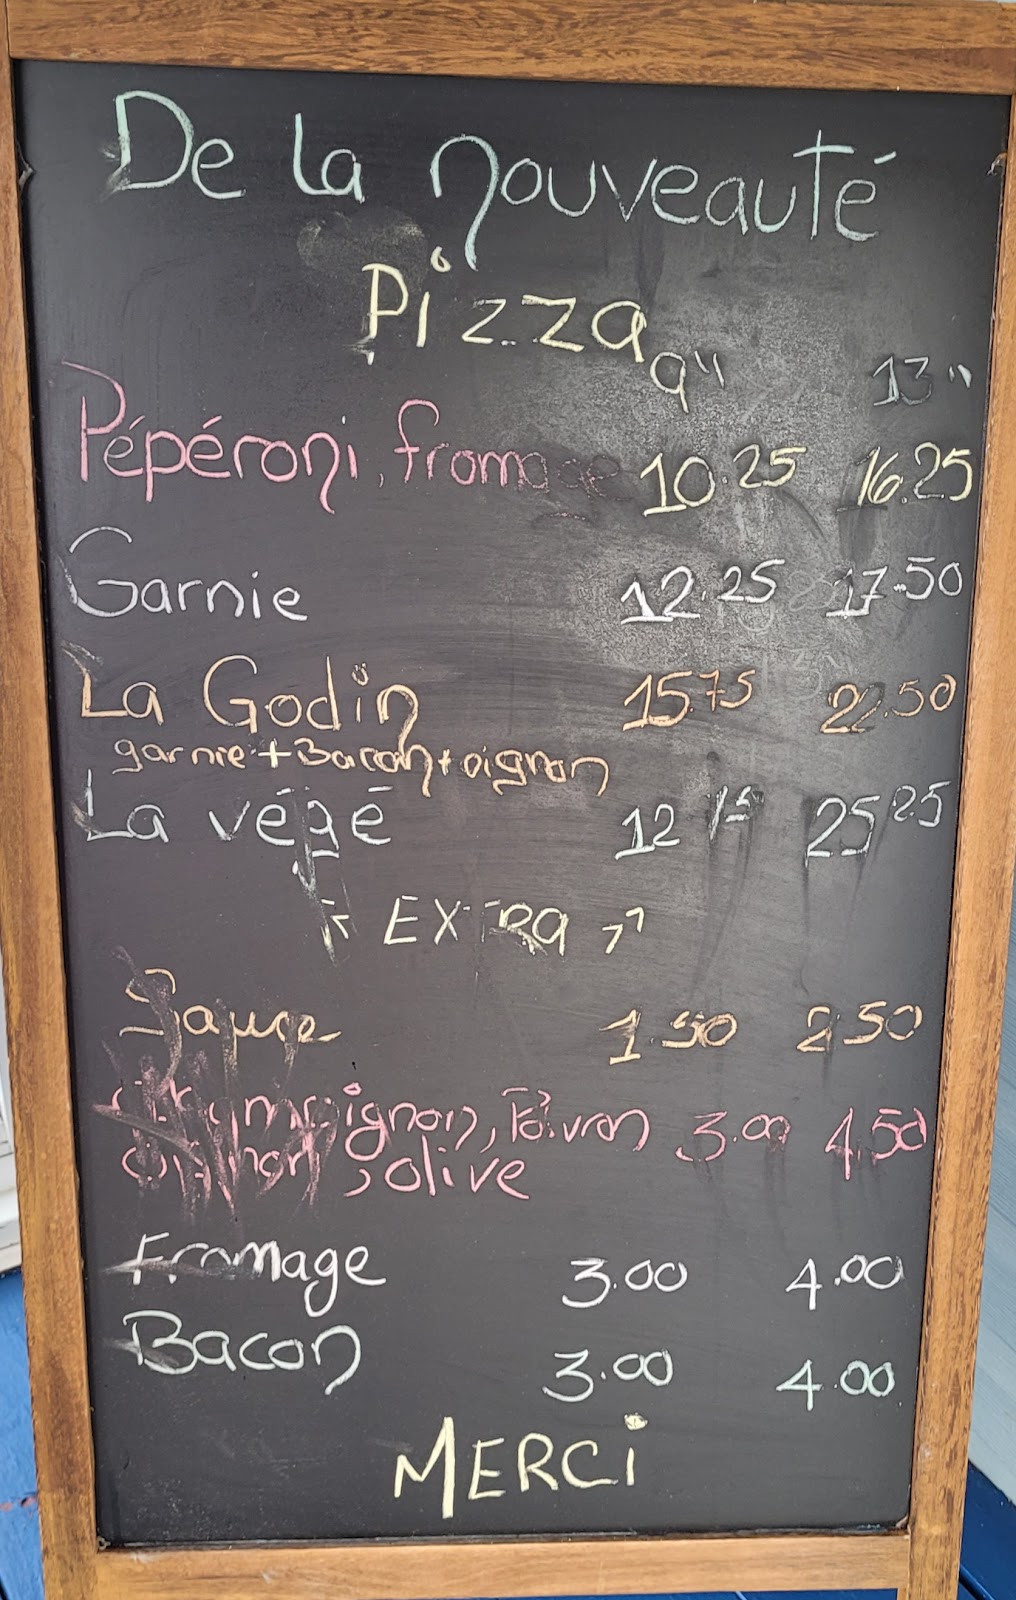 De la nouveauté
Pizza
9" 13"
Pépéroni, fromage 10.25 16.25
Garnie 12.25 17.50
La Godin 15.75 22.50
garnie + Bacon + oignon
La végé 12 75 25 25
EXTRA
Sauce 1.50 2.50
Champignon, Poivron 3.00 4.50
Oignon, olive
Fromage 3.00 4.00
Bacon 3.00 4.00
MERCi